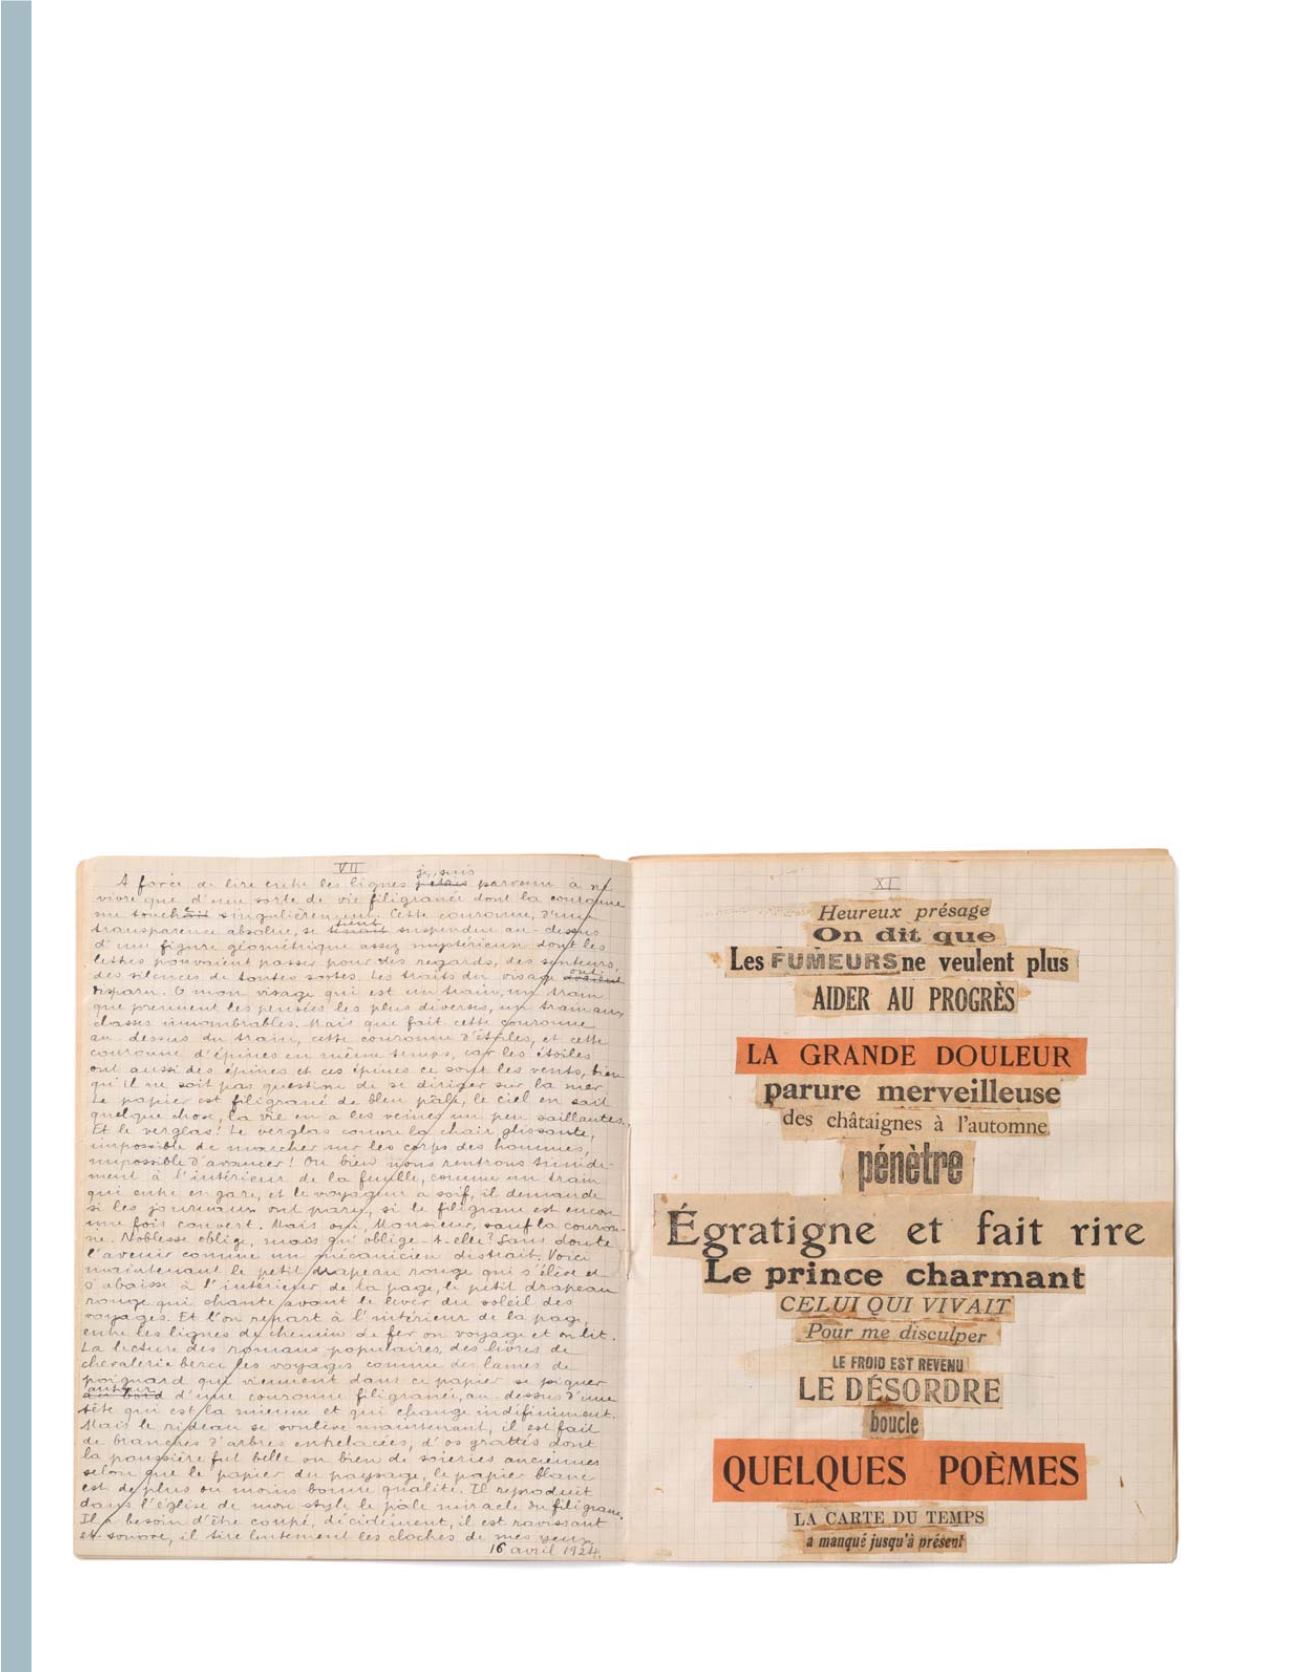 VII
je suis
A force de lire entre les lignes j'étais parvenu à ne
vivre que d'une sorte de vie filigranée dont la couronne
me touchait singulièrement. Cette couronne, d'une
tient
transparence absolue, se tenait suspendue au-dessus
d'une figure géométrique assez mystérieuse dont les
lettres pouvaient passer pour des regards, des senteurs,
des silences de toutes sortes. Les traits du visage avaient
ont
disparu. O mon visage qui est un train, un train
que prennent les pensées les plus diverses, un train aux
classes innombrables. Mais que fait cette couronne
au dessus du train, cette couronne d'étoiles, et cette
couronne d'épines en même temps, car les étoiles
ont aussi des épines et ces épines ce sont les vents, bien
qu'il ne soit pas question de se diriger sur la mer.
Le papier est filigrané de bleu pâle, le ciel en sait
quelque chose, la vie en a les veines un peu saillantes.
Et le verglas! Le verglas couvre la chair glissante,
impossible de marcher sur les corps des hommes,
impossible d'avancer! Ou bien nous rentrons timide-
ment à l'intérieur de la feuille, comme un train
qui entre en gare, et le voyageur a soif, il demande
si les journaux ont paru, si le filigrane est encore
une fois couvert. Mais oui, Monsieur, sauf la couron-
ne. Noblesse oblige, mais qu'oblige-t-elle? Sans doute
l'avenir comme un mécanicien distrait. Voici
maintenant le petit drapeau rouge qui s'élève et
s'abaisse à l'intérieur de la page, le petit drapeau
rouge qui chante avant le lever du soleil des
voyages. Et l'on repart à l'intérieur de la page,
entre les lignes de chemin de fer on voyage et on lit.
La lecture des romans populaires, des livres de
chevalerie berce les voyages comme des lames de
poignard qui viennent dans ce papier se piquer
autour
au bord d'une couronne filigranée, au-dessus d'une
tête qui est la mienne et qui change indéfiniment.
Mais le rideau se soulève maintenant, il est fait
de branches d'arbres entrelacées, d'os grattés dont
la poussière fut belle ou bien de soieries anciennes
selon que le papier du paysage, le papier blanc
est de plus ou moins bonne qualité. Il reproduit
dans l'église de mon style le pâle miracle du filigrane.
Il a besoin d'être coupé, décidément, il est ravissant
et sonore, il tire lentement les cloches de mes yeux.
16 avril 1924.
XI
Heureux présage
On dit que
Les FUMEURS ne veulent plus
AIDER AU PROGRÈS
LA GRANDE DOULEUR
parure merveilleuse
des châtaignes à l'automne
pénètre
Égratigne et fait rire
Le prince charmant
CELUI QUI VIVAIT
Pour me disculper
LE FROID EST REVENU
LE DÉSORDRE
boucle
QUELQUES POÈMES
LA CARTE DU TEMPS
a manqué jusqu'à présent